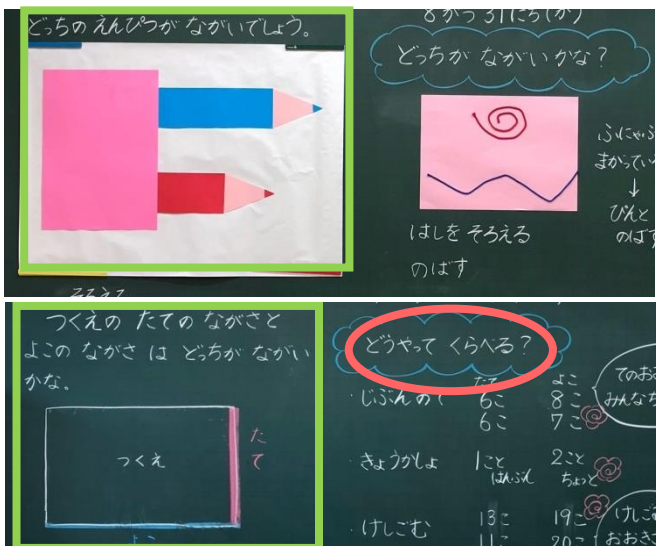 どっちの えんぴつが ながいでしょう。
8がつ 31にち(か)
どっちが ながいかな?
まがってい
↓
ぴんと
のばす
はしを そろえる
のばす
そろえて
つくえの たての ながさと
よこの ながさ は どっちが ながい
かな。
つくえ
たて
よこ
どうやって くらべる?
たて よこ
・じぶんの 6こ 8こ
6こ 7こ
てのお
みんなち
・きょうかしょ 1こと 2こと
はんぶん ちょっと
・けしごむ 13こ 19こ
11こ 20こ
けしご
おおきさ